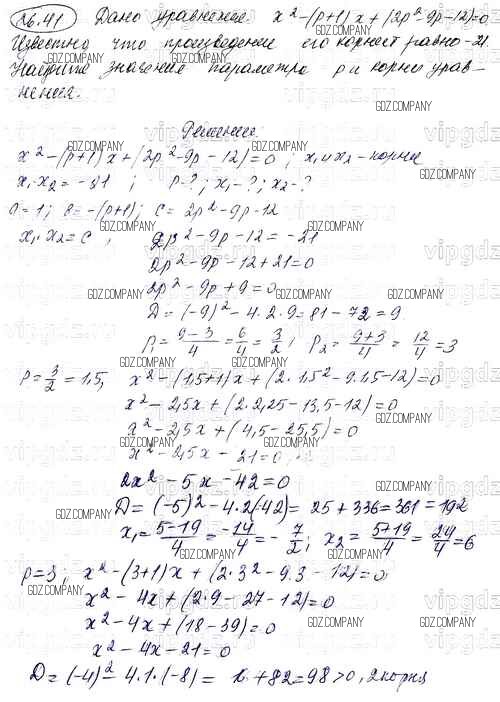 26.41 Дано уравнение x² - (p+1)x + (2p² - 9p - 12) = 0
Известно что произведение его корней равно -21.
Найдите значение параметра p и корни урав-
нения.
Решение.
x² - (p+1)x + (2p² - 9p - 12) = 0 ; x₁ и x₂ - корни
x₁ · x₂ = -21 ; p - ? ; x₁ - ? ; x₂ - ?
a = 1 ; b = -(p+1) ; c = 2p² - 9p - 12
x₁ · x₂ = c , 2p² - 9p - 12 = -21
2p² - 9p - 12 + 21 = 0
2p² - 9p + 9 = 0
D = (-9)² - 4 · 2 · 9 = 81 - 72 = 9
p₁ = (9-3)/4 = 6/4 = 3/2 ; p₂ = (9+3)/4 = 12/4 = 3
p = 3/2 = 1,5, x² - (1,5+1)x + (2 · 1,5² - 9 · 1,5 - 12) = 0
x² - 2,5x + (2 · 2,25 - 13,5 - 12) = 0
x² - 2,5x + (4,5 - 25,5) = 0
x² - 2,5x - 21 = 0
2x² - 5x - 42 = 0
D = (-5)² - 4 · 2(-42) = 25 + 336 = 361 = 19²
x₁ = (5-19)/4 = -14/4 = -7/2 ; x₂ = (5+19)/4 = 24/4 = 6
p = 3 ; x² - (3+1)x + (2 · 3² - 9 · 3 - 12) = 0
x² - 4x + (2 · 9 - 27 - 12) = 0
x² - 4x + (18 - 39) = 0
x² - 4x - 21 = 0
D = (-4)² - 4 · 1 · (-8) = + 82 = 98 > 0, 2 корня